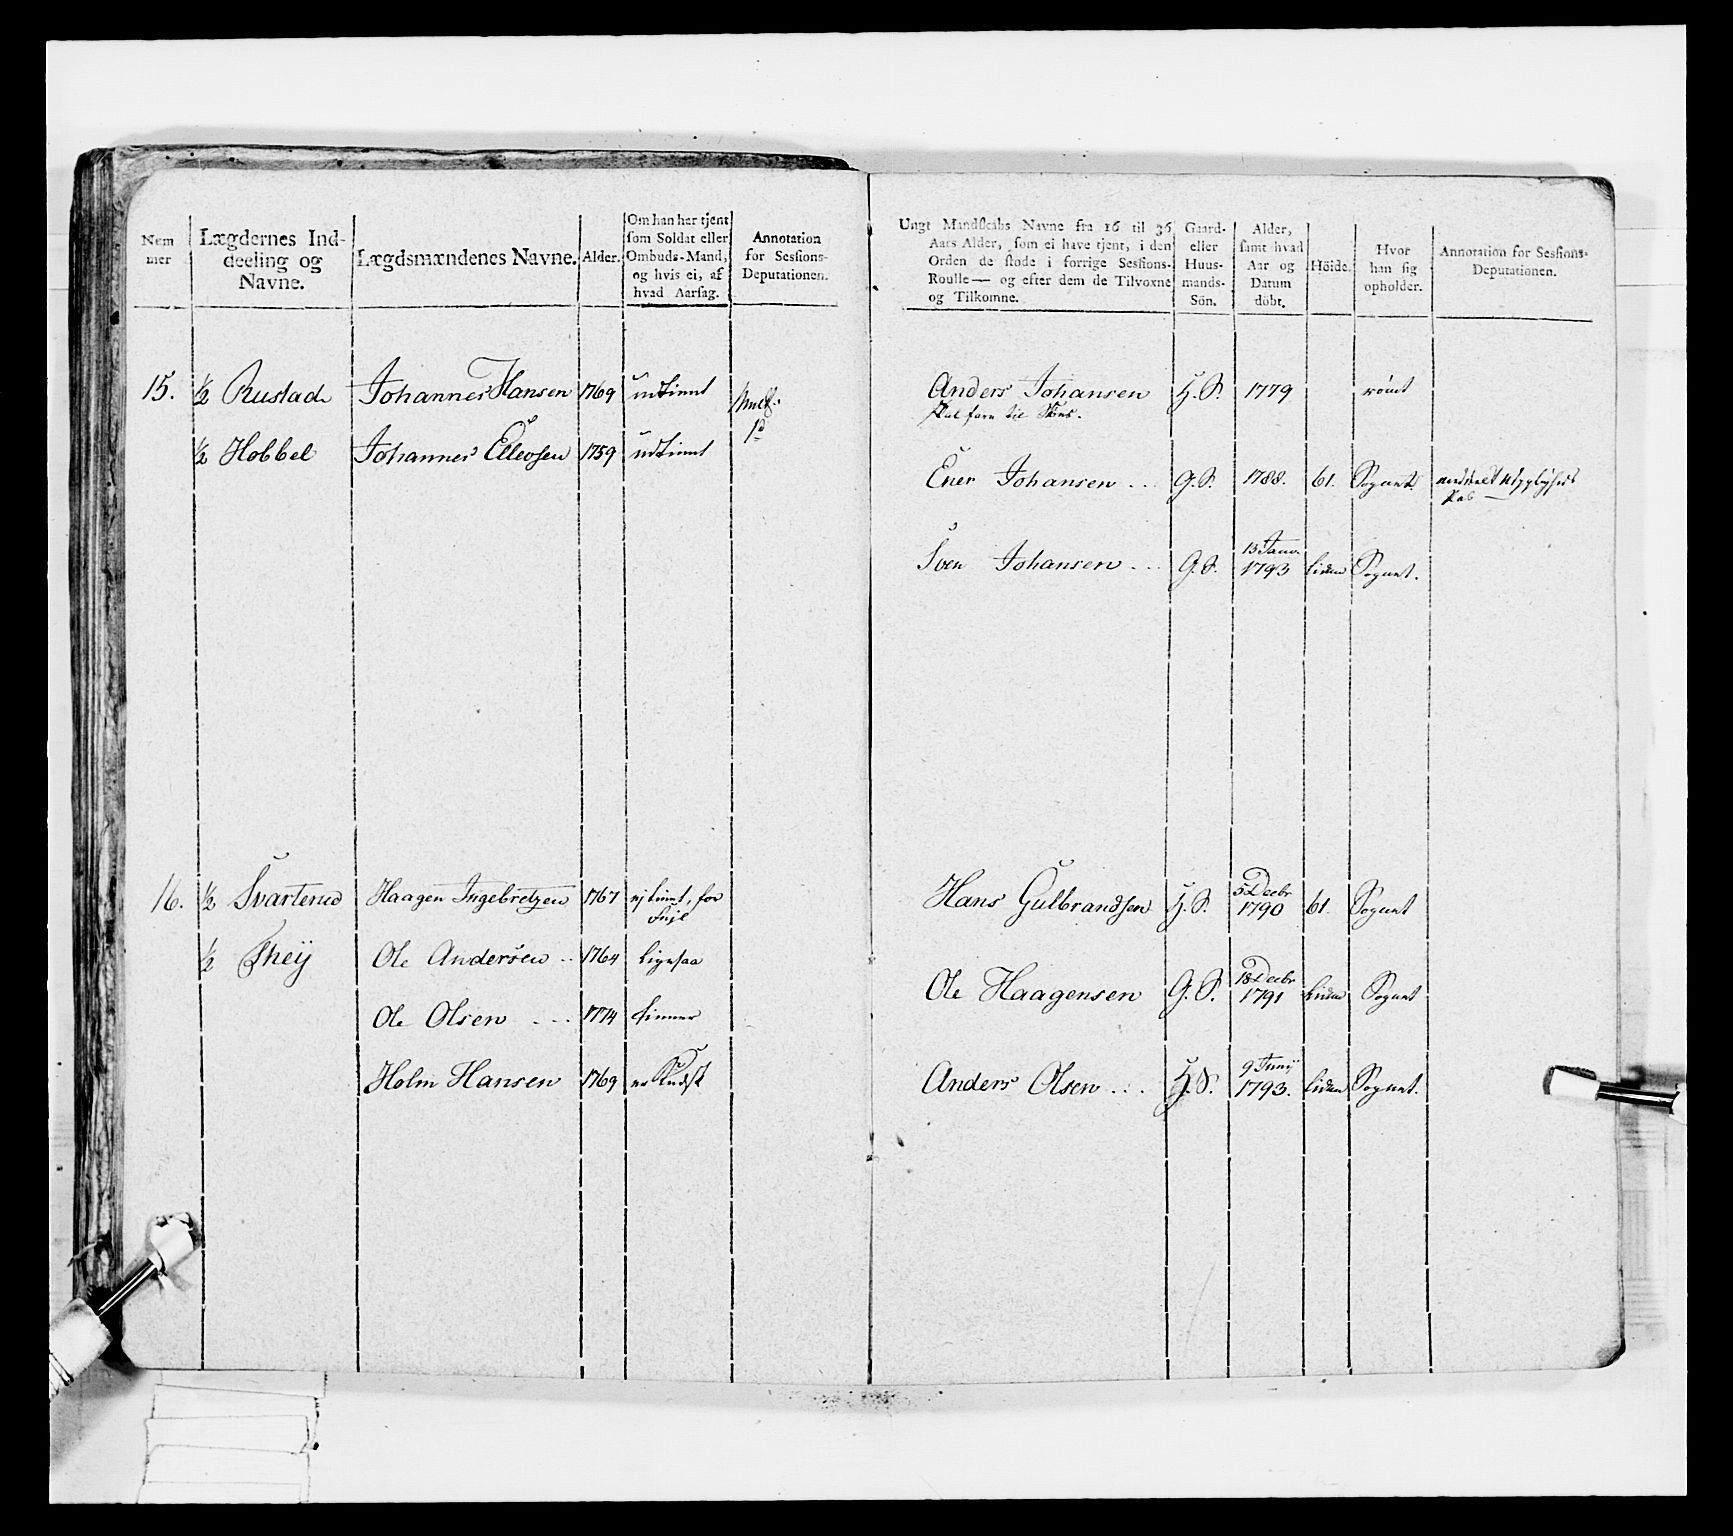 Nem
mer
Lægdernes Ind-
deeling og
Navne.
Lægdsmændenes Navne.
Alder.
Om han har tjent
som Soldat eller
Ombuds-Mand,
og hvis ei, af
hvad Aarsag.
Annotation
for Sessions-
Deputationen.
15. ½ Rustad Johannes Hansen 1769 udtient
½ Hobbel Johannes Ellevsen 1759 udtient
16. ½ Svarterud Haagen Ingebretzen 1767 ej tient, for
Feijl
½ Theÿ Ole Andersen .. 1764 ligesaa
Ole Olsen ... 1774 tiener
Holm Hansen 1769
Ungt Mandskabs Navne fra 16 til 36
Aars Alder, som ei have tjent, i den
Orden de stode i forrige Sessions-
Roulle — og efter dem de Tilvoxne
og Tilkomne.
Gaard-
eller
Huus-
mands-
Sön.
Alder,
samt hvad
Aar og
Datum
döbt.
Höide.
Hvor
han sig
opholder.
Annotation for Sessions-
Deputationen.
Anders Johansen H.S. 1779 rømt
Skal fare til Søes.
Ener Johansen ... G.S. 1788. 61. Sognet
Sven Johansen ... G.S. 13 Janv. 1793 liden Sognet.
Hans Gulbrandsen H.S. 5 Decbr 1790 61. Sognet
Ole Haagensen G.S. 18 Decbr 1791 liden Sognet
Anders Olsen ... H.S. 9 Junÿ 1793. liden Sognet.